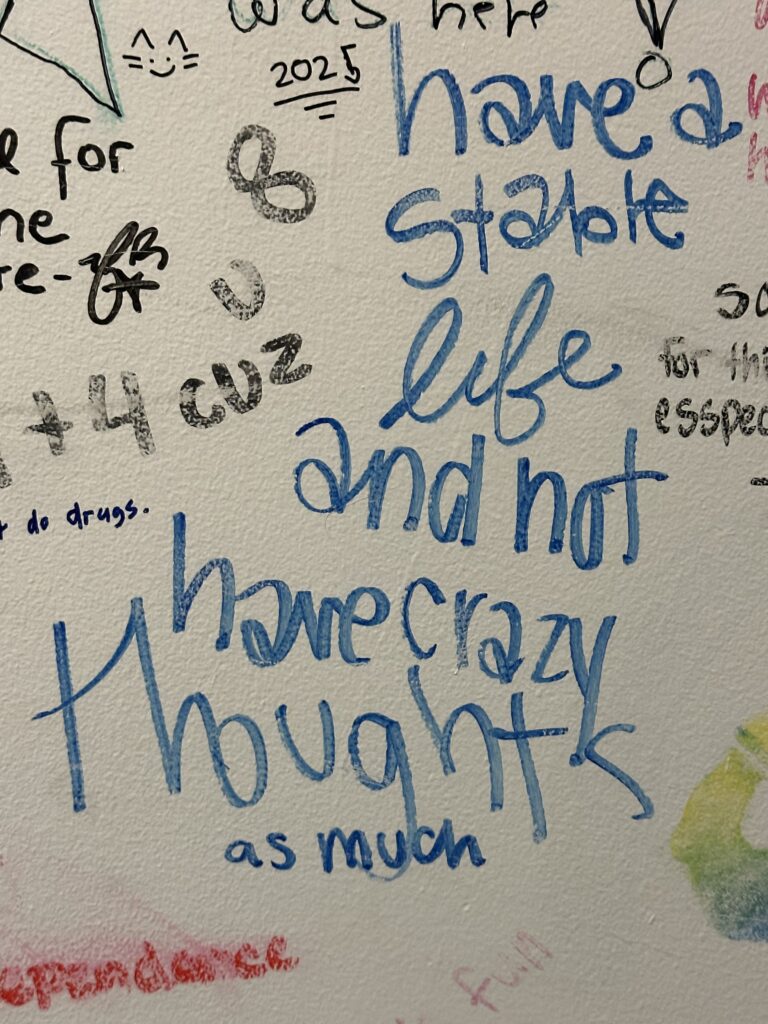 was here
2025
have a
stable
life
and not
have crazy
thoughts
as much
for
8
U
+4 cuz
do drugs.
for thi
esspec
ependence
full